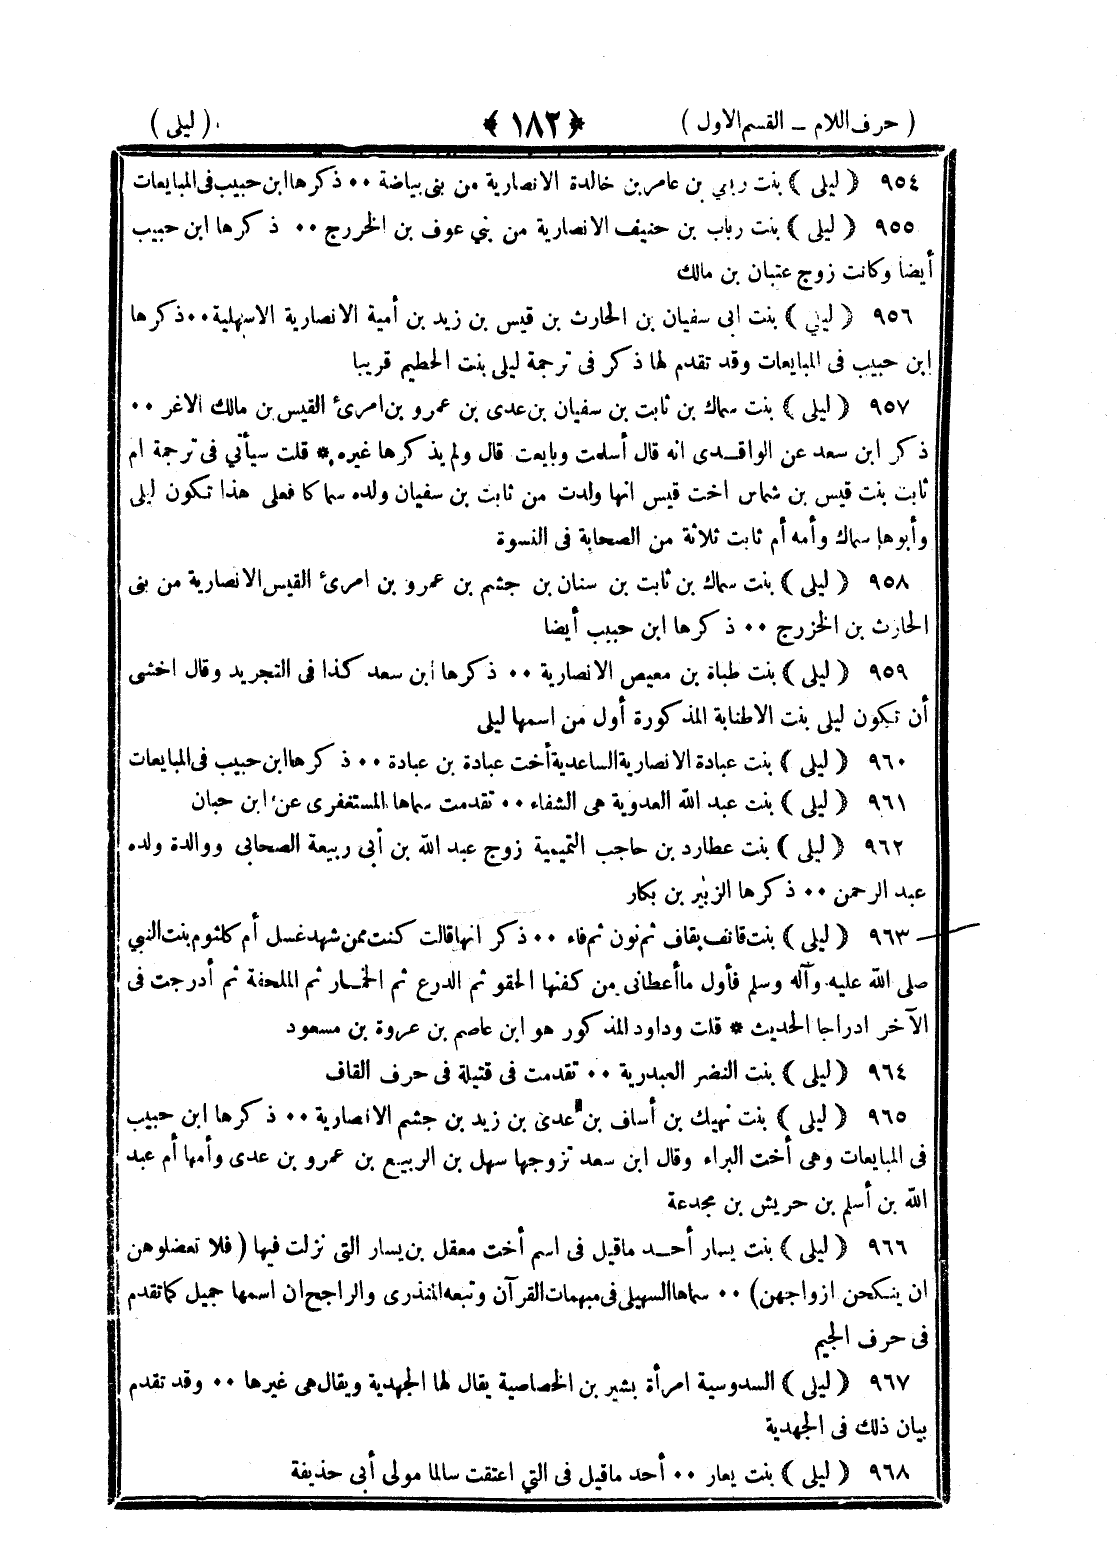 ( حرف اللام – القسم الاول ) ﴿ ١٨٢ ﴾ ( ليلى )
٩٥٤ ( ليلى ) بنت ربابي بن عامر بن خالدة الانصارية من بنى بياضة ٠٠ ذكرها ابن حبيب فى المبايعات
٩٥٥ ( ليلى ) بنت رباب بن حنيف الانصارية من بني عوف بن الخررج ٠٠ ذكرها ابن حبيب
أيضا وكانت زوج عتبان بن مالك
٩٥٦ ( ليلى ) بنت ابى سفيان بن الحارث بن قيس بن زيد بن أمية الانصارية الاسهلية ٠٠ ذكرها
ابن حبيب فى المبايعات وقد تقدم لها ذكر فى ترجمة ليلى بنت الحطيم قريبا
٩٥٧ ( ليلى ) بنت سماك بن ثابت بن سفيان بن عدى بن عمرو بن امرئ القيس بن مالك الاغر ٠٠
ذكر ابن سعد عن الواقدى انه قال أسلمت وبايعت قال ولم يذكرها غيره * قلت سيأتي فى ترجمة ام
ثابت بنت قيس بن شماس اخت قيس انها ولدت من ثابت بن سفيان ولده سماكا فعلى هذا تكون ليلى
وأبوها سماك وأمه أم ثابت ثلاثة من الصحابة فى النسوة
٩٥٨ ( ليلى ) بنت سماك بن ثابت بن سنان بن جشم بن عمرو بن امرئ القيس الانصارية من بنى
الحارث بن الخزرج ٠٠ ذكرها ابن حبيب أيضا
٩٥٩ ( ليلى ) بنت طباة بن معيص الانصارية ٠٠ ذكرها ابن سعد كذا فى التجريد وقال اخشى
أن تكون ليلى بنت الاطنابة المذكورة أول من اسمها ليلى
٩٦٠ ( ليلى ) بنت عبادة الانصارية الساعدية أخت عبادة بن عبادة ٠٠ ذكرها ابن حبيب فى المبايعات
٩٦١ ( ليلى ) بنت عبد الله العدوية هى الشفاء ٠٠ تقدمت سماها المستغفرى عن ابن حبان
٩٦٢ ( ليلى ) بنت عطارد بن حاجب التميمية زوج عبد الله بن أبى ربيعة الصحابى ووالدة ولده
عبد الرحمن ٠٠ ذكرها الزبير بن بكار
٩٦٣ ( ليلى ) بنت قانف بقاف ثم نون ثم فاء ٠٠ ذكر انها قالت كنت ممن شهد غسل أم كلثوم بنت النبي
صلى الله عليه وآله وسلم فأول ما أعطانى من كفنها الحقو ثم الدرع ثم الخمار ثم الملحفة ثم أدرجت فى
الآخر ادراجا الحديث * قلت وداود المذكور هو ابن عاصم بن عروة بن مسعود
٩٦٤ ( ليلى ) بنت النضر العبدرية ٠٠ تقدمت فى قتيلة فى حرف القاف
٩٦٥ ( ليلى ) بنت نهيك بن أساف بن عدى بن زيد بن جشم الانصارية ٠٠ ذكرها ابن حبيب
فى المبايعات وهى أخت البراء وقال ابن سعد تزوجها سهل بن الربيع بن عمرو بن عدى وأمها أم عبد
الله بن أسلم بن حريش بن مجدعة
٩٦٦ ( ليلى ) بنت يسار أحد ماقيل فى اسم أخت معقل بن يسار التى نزلت فيها ( فلا تعضلوهن
ان ينكحن ازواجهن ) ٠٠ سماها السهيلى فى مبهمات القرآن وتبعه المنذرى والراجح ان اسمها جميل كما تقدم
فى حرف الجيم
٩٦٧ ( ليلى ) السدوسية امرأة بشير بن الخصاصية يقال لها الجهدية ويقال هى غيرها ٠٠ وقد تقدم
بيان ذلك فى الجهدية
٩٦٨ ( ليلى ) بنت يعار ٠٠ أحد ماقيل فى التي اعتقت سالما مولى أبى حذيفة